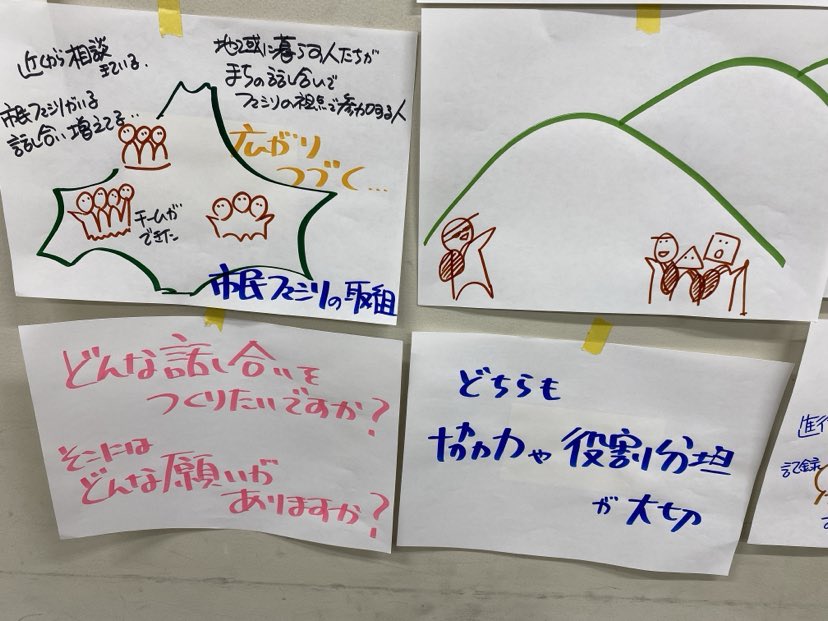 近くから相談
きている。
市民ファシリがいる
話し合い増えてる…
地域に暮らす人たちが
まちの話し合いで
ファシリの視点で参加する人
広がり
つづく…
チームが
できた
市民ファシリの取組
どんな話し合いを
つくりたいですか？
そこには
どんな願いが
ありますか？
どちらも
協力や役割分担
が大切
進行
記録